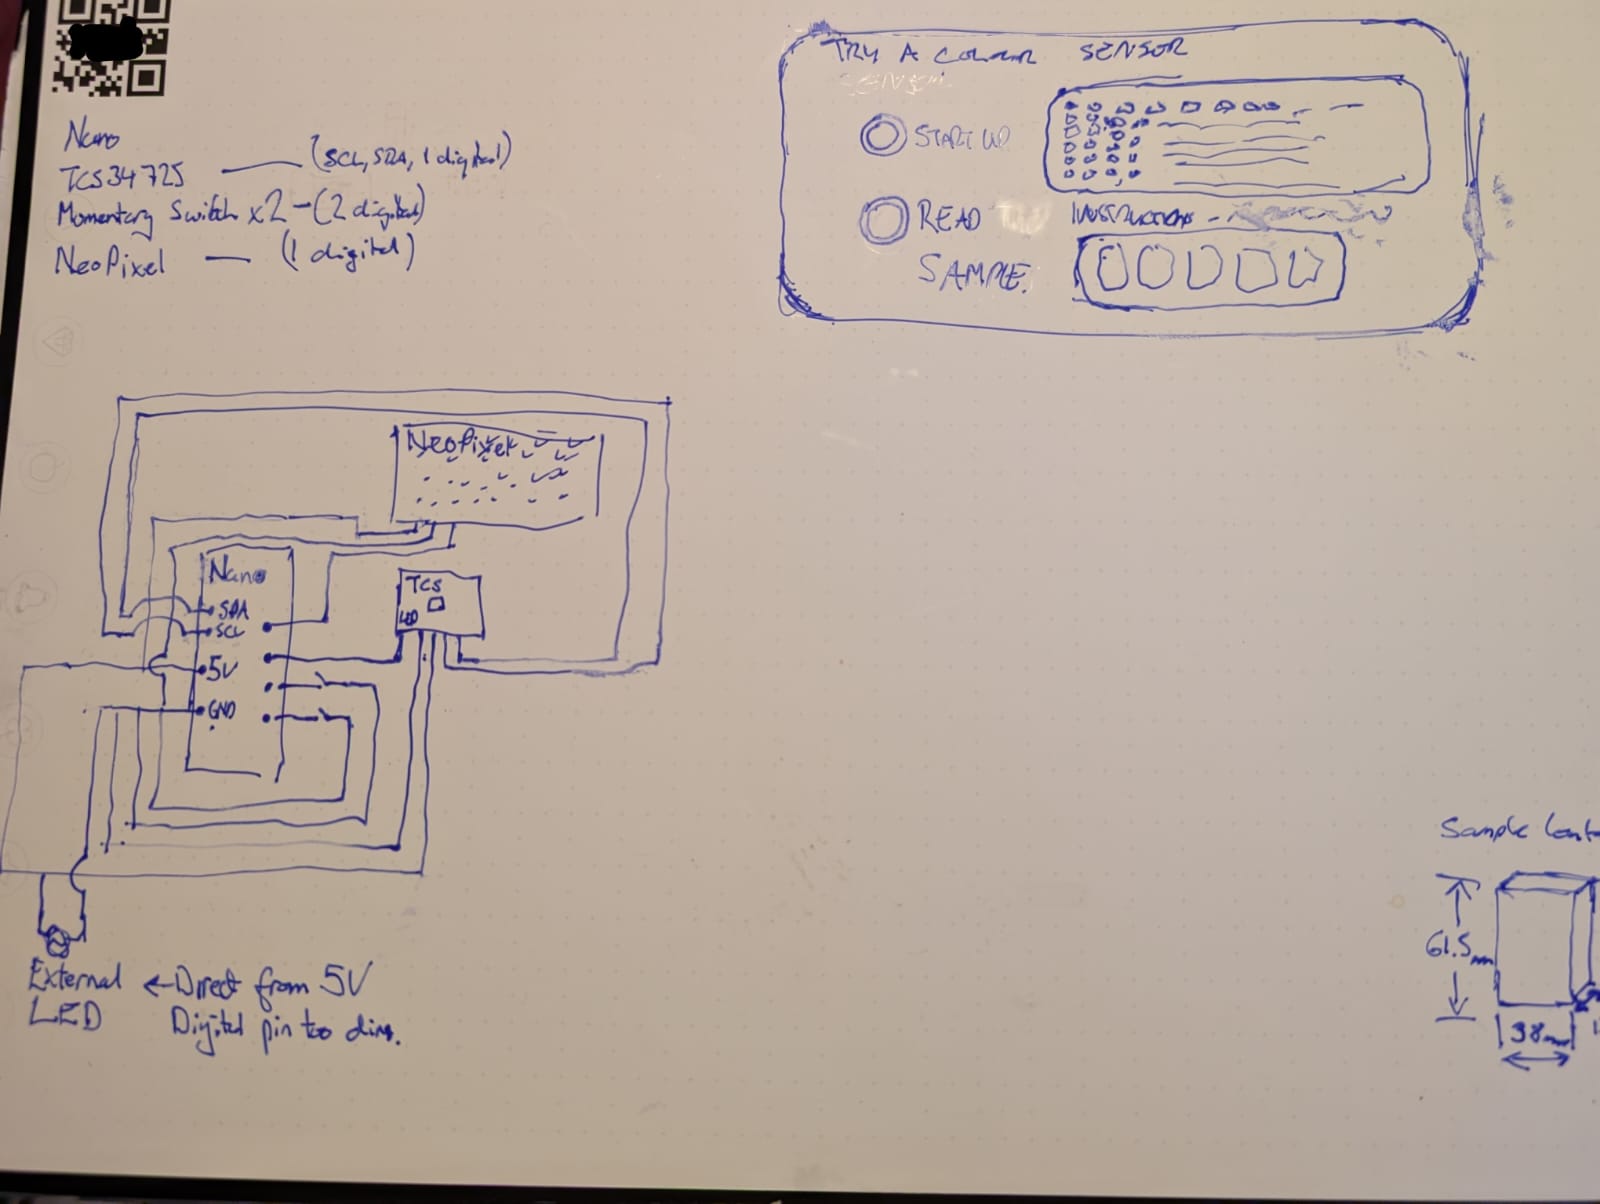 Nano
TCS34725 — (SCL, SDA, 1 digital)
Momentary Switch x2 - (2 digital)
NeoPixel — (1 digital)
TRY A COLOUR SENSOR
START UP
READ
SAMPLE.
INSTRUCTIONS -
NeoPixel
Nano
SDA
SCL
5V
GND
TCS
LED
External
LED
← Direct from 5V
Digital pin too dim.
Sample
61.5mm
38mm